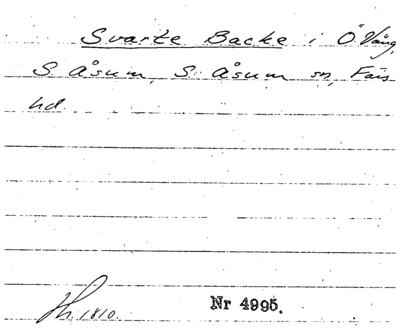 Svarte Backe i Ö. Vång,
S. Åsum, S. Åsum sn, Färs
hd.
Sk. 1810.
Nr 4995.